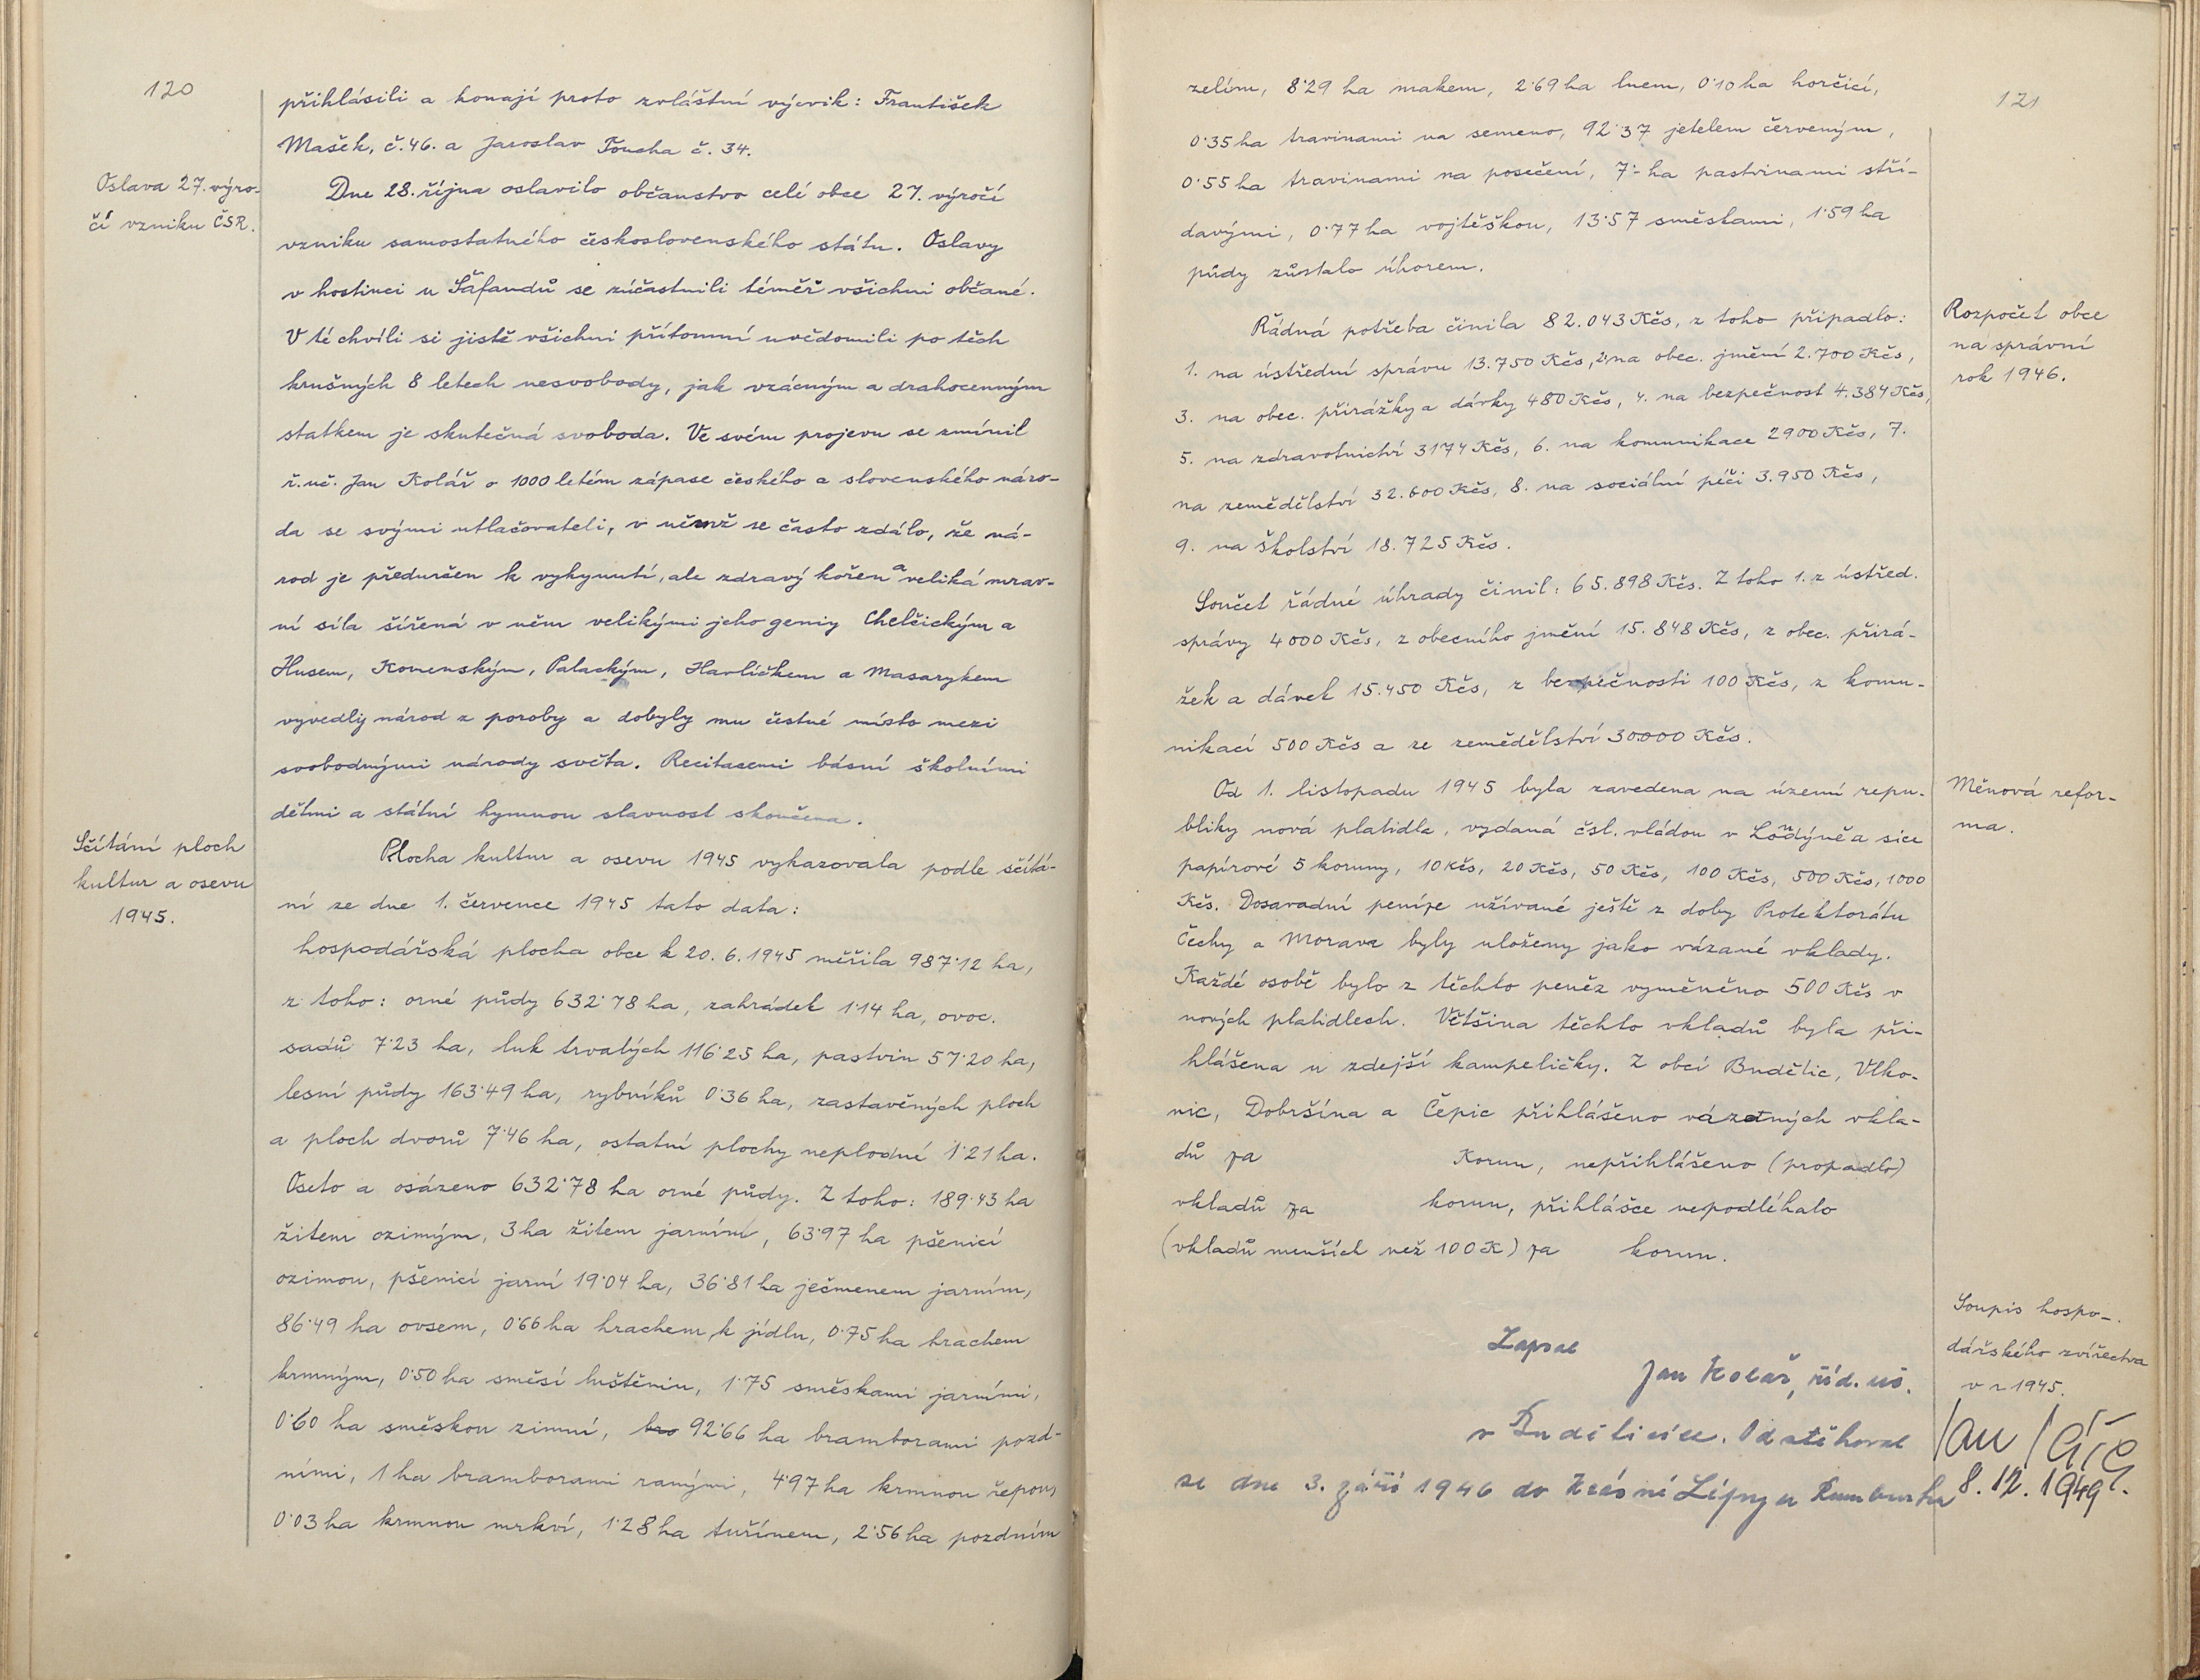 120
přihlásili a konají proto zvláštní výcvik: František
Mašek, č.46. a Jaroslav Toucha č. 34.
Oslava 27. výro-
čí vzniku ČSR.
Dne 28. října oslavilo občanstvo celé obce 27. výročí
vzniku samostatného československého státu. Oslavy
v hostinci u Šafandů se zúčastnili téměř všichni občané.
V té chvíli si jistě všichni přítomní uvědomili po těch
krušných 8 letech nesvobody, jak vzácným a drahocenným
statkem je skutečná svoboda. Ve svém projevu se zmínil
ř. uč. Jan Kolář o 1000 letém zápase českého a slovenského náro-
da se svými utlačovateli, v němž se často zdálo, že ná-
rod je předurčen k vyhynutí, ale zdravý kořen a veliká mrav-
ní síla šířená v něm velikými jeho geniy Chelčickým a
Husem, Komenským, Palackým, Havlíčkem a Masarykem
vyvedly národ z poroby a dobyly mu čestné místo mezi
svobodnými národy světa. Recitacemi básní školními
dětmi a státní hymnou slavnost skončena.
Sčítání ploch
kultur a osevu
1945.
Plocha kultur a osevu 1945 vykazovala podle sčítá-
ní ze dne 1. července 1945 tato data:
hospodářská plocha obce k 20. 6. 1945 měřila 987·12 ha,
z toho: orné půdy 632·78 ha, zahrádek 1·14 ha, ovoc.
sadů 7·23 ha, luk trvalých 116·25 ha, pastvin 57·20 ha,
lesní půdy 163·49 ha, rybníků 0·36 ha, zastavěných ploch
a ploch dvorů 7·46 ha, ostatní plochy neplodné 1·21 ha.
Oseto a osázeno 632·78 ha orné půdy. Z toho: 189·43 ha
žitem ozimým, 3 ha žitem jarním, 63·97 ha pšenicí
ozimou, pšenicí jarní 19·04 ha, 36·81 ha ječmenem jarním,
86·49 ha ovsem, 0·66 ha hrachem k jídlu, 0·75 ha hrachem
krmným, 0·50 ha směsí luštěnin, 1·75 směskami jarními,
0·60 ha směskou zimní, bro 92·66 ha bramborami pozd-
ními, 1 ha bramborami ranými, 4·97 ha krmnou řepou,
0·03 ha krmnou mrkví, 1·28 ha tuřínem, 2·56 ha pozdním
121
zelím, 8·29 ha makem, 2·69 ha lnem, 0·10 ha hořčicí,
0·35 ha travinami na semeno, 92·37 jetelem červeným,
0·55 ha travinami na posečení, 7·- ha pastvinami stří-
davými, 0·77 ha vojtěškou, 13·57 směskami, 1·59 ha
půdy zůstalo úhorem.
Rozpočet obce
na správní
rok 1946.
Řádná potřeba činila 82.043 Kčs, z toho připadlo:
1. na ústřední správu 13.750 Kčs, 2. na obec. jmění 2.700 Kčs,
3. na obec. přirážky a dávky 480 Kčs, 4. na bezpečnost 4.384 Kčs,
5. na zdravotnictví 3174 Kčs, 6. na komunikace 2900 Kčs, 7.
na zemědělství 32.600 Kčs, 8. na sociální péči 3.950 Kčs,
9. na školství 18.725 Kčs.
Součet řádné úhrady činil: 65.898 Kčs. Z toho 1. z ústřed.
správy 4000 Kčs, z obecního jmění 15.848 Kčs, z obec. přirá-
žek a dávek 15.450 Kčs, z bezpečnosti 100 Kčs, z komu-
nikací 500 Kčs a ze zemědělství 30000 Kčs.
Měnová refor-
ma.
Od 1. listopadu 1945 byla zavedena na území repu-
bliky nová platidla, vydaná čsl. vládou v Londýně a sice
papírové 5 koruny, 10 Kčs, 20 Kčs, 50 Kčs, 100 Kčs, 500 Kčs, 1000
Kčs. Dosavadní peníze užívané ještě z doby Protektorátu
Čechy a Morava byly uloženy jako vázané vklady.
Každé osobě bylo z těchto peněz vyměněno 500 Kčs v
nových platidlech. Většina těchto vkladů byla při-
hlášena u zdejší kampeličky. Z obcí Budětic, Vlko-
nic, Dobršína a Čepic přihlášeno vázaných vkla-
dů za korun, nepřihlášeno (propadlo)
vkladů za korun, přihlášce nepodléhalo
(vkladů menších než 100 K) za korun.
Soupis hospo-
dářského zvířectva
v r 1945.
Zapsal
Jan Kolář, říd. uč.
v Buděticích. Odstěhoval
se dne 3. září 1946 do Krásné Lípy u Rumburka
8. 12. 1949